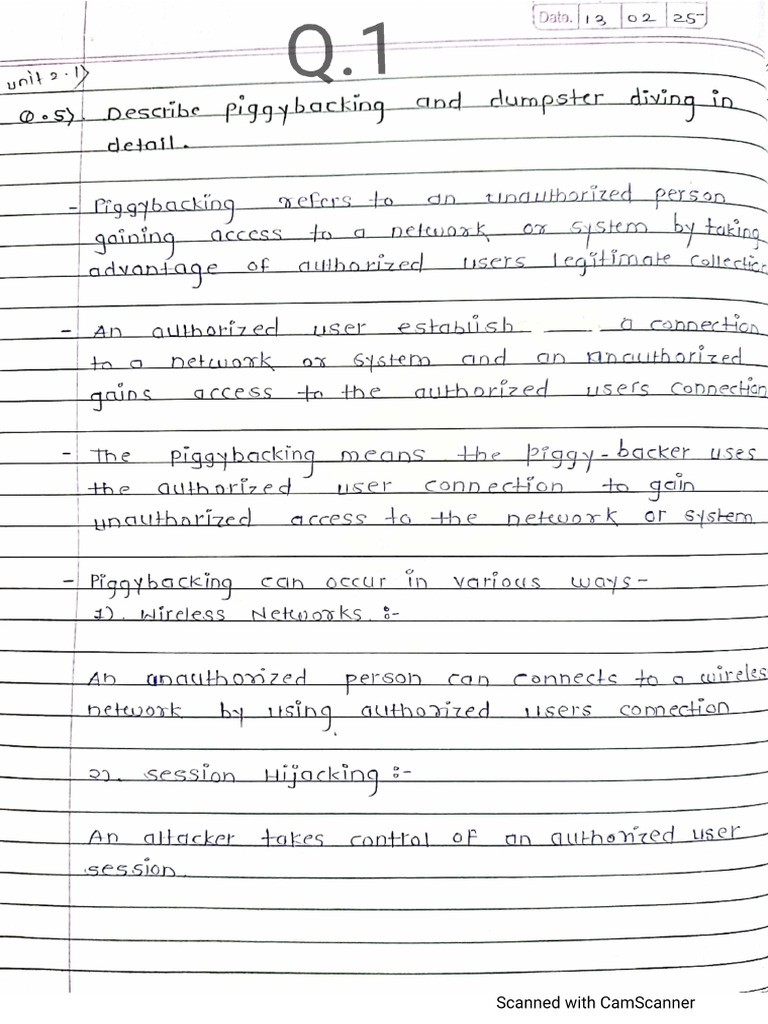 Date. 13 02 25
Q.1
unit 2.1)
Q.5) Describe piggybacking and dumpster diving in
detail.
- Piggybacking refers to an unauthorized person
gaining access to a network or system by taking
advantage of authorized users legitimate collection
- An authorized user establish a connection
to a network or system and an unauthorized
gains access to the authorized users connection
- The piggybacking means the piggy-backer uses
the authorized user connection to gain
unauthorized access to the network or system
- Piggybacking can occur in various ways-
1). Wireless Networks :-
An unauthorized person can connects to a wireles
network by using authorized users connection
2). Session Hijacking :-
An attacker takes control of an authorized user
session.
Scanned with CamScanner